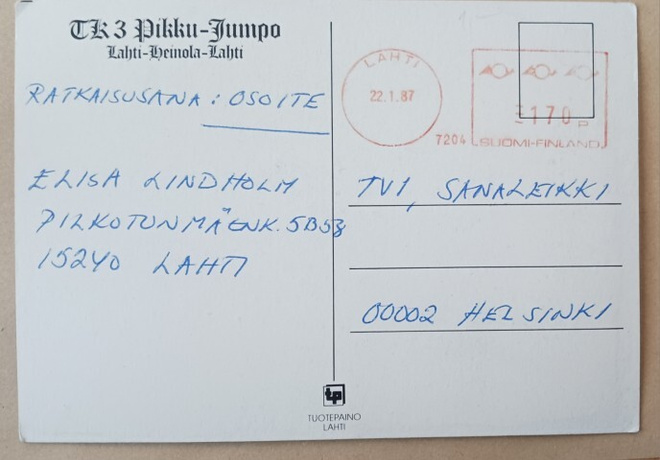 TK 3 Pikku-Jumpo
Lahti-Heinola-Lahti
RATKAISUSANA: OSOITE
ELISA LINDHOLM
PILKOTUNMÄENK. 5B58
15240 LAHTI
LAHTI
22.1.87
7204
170 P
SUOMI-FINLAND
TV1, SANALEIKKI
00002 HELSINKI
tp
TUOTEPAINO
LAHTI